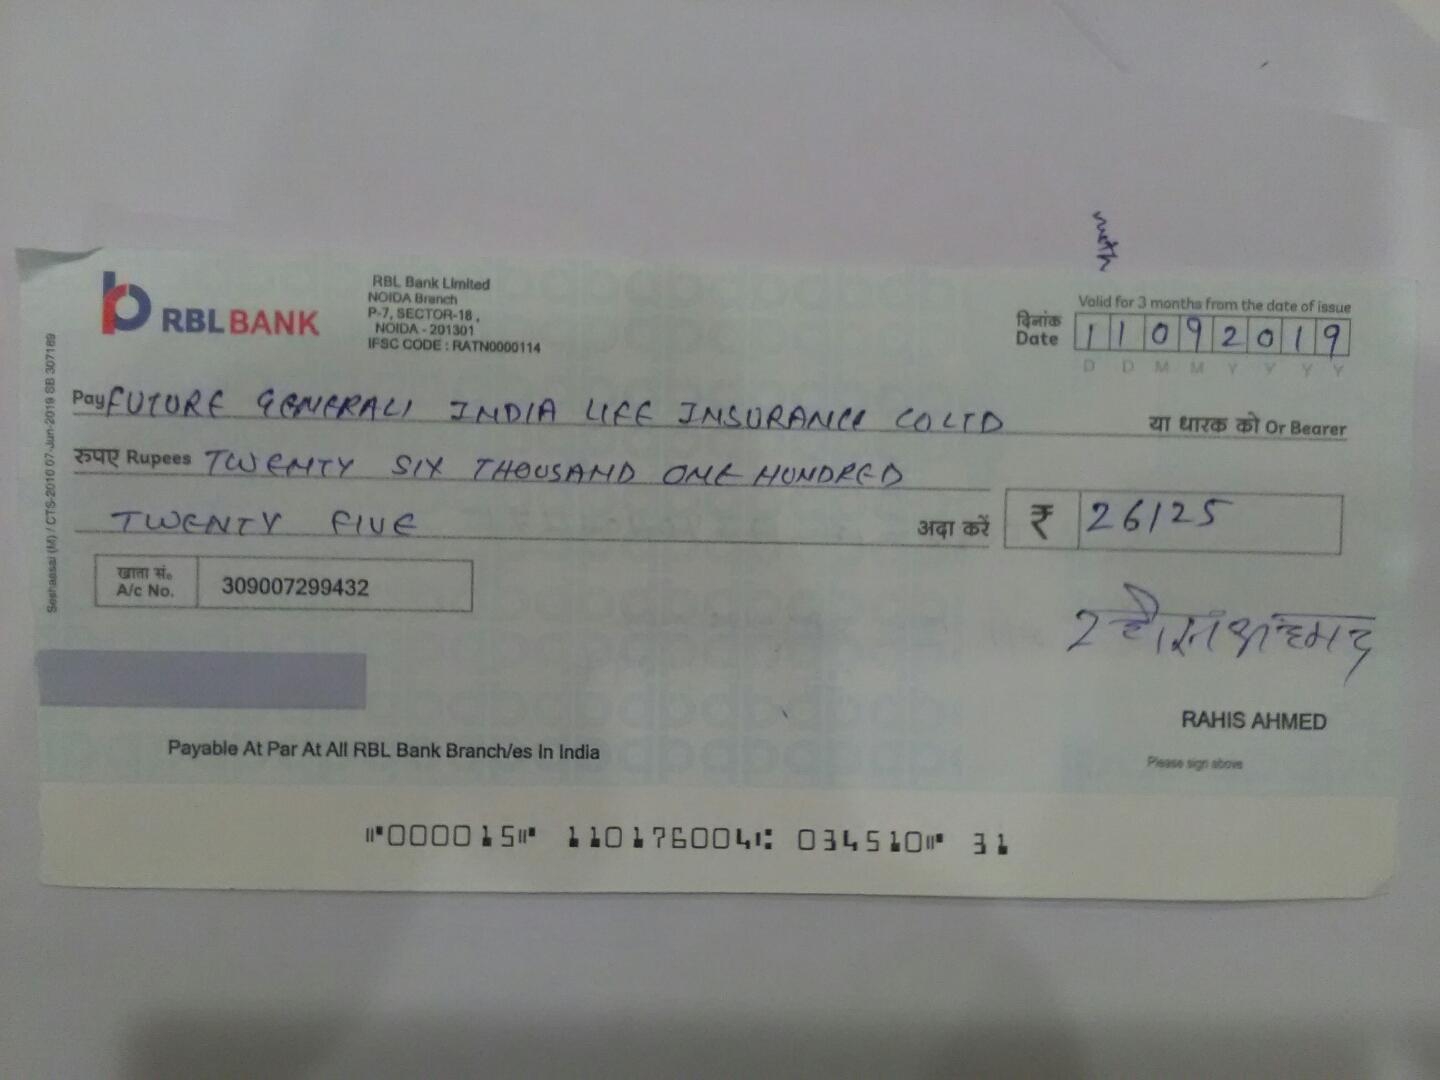 RBL BANK
RBL Bank Limited
NOIDA Branch
P-7, SECTOR-18,
NOIDA - 201301
IFSC CODE : RATN0000114
Valid for 3 months from the date of issue
दिनांक
Date 11092019
D D M M Y Y Y Y
Pay FUTURE GENERALI INDIA LIFE INSURANCE CO LTD
या धारक को Or Bearer
रुपए Rupees TWENTY SIX THOUSAND ONE HUNDRED
TWENTY FIVE
अदा करें ₹ 26125
खाता सं.
A/c No. 309007299432
रहीस अहमद
RAHIS AHMED
Please sign above
Payable At Par At All RBL Bank Branch/es In India
⑈000015⑈ 110176004⑆ 034510⑈ 31
Seshaasai (M) / CTS-2010 07-Jun-2019 SB 307189